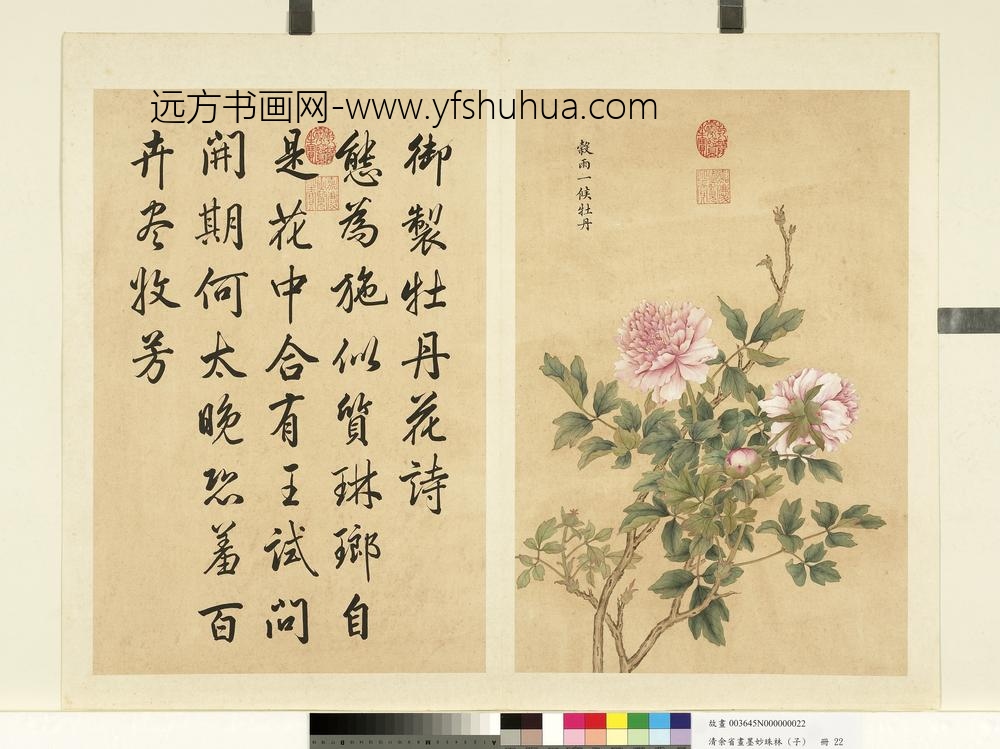 远方书画网-www.yfshuhua.com
穀雨一候牡丹
御製牡丹花詩
態為施似質琳瑯自
是花中合有王試問
開期何太晚恐羞百
卉尽收芳
故畫 003645N000000022
清余省畫墨妙珠林（子） 冊 22